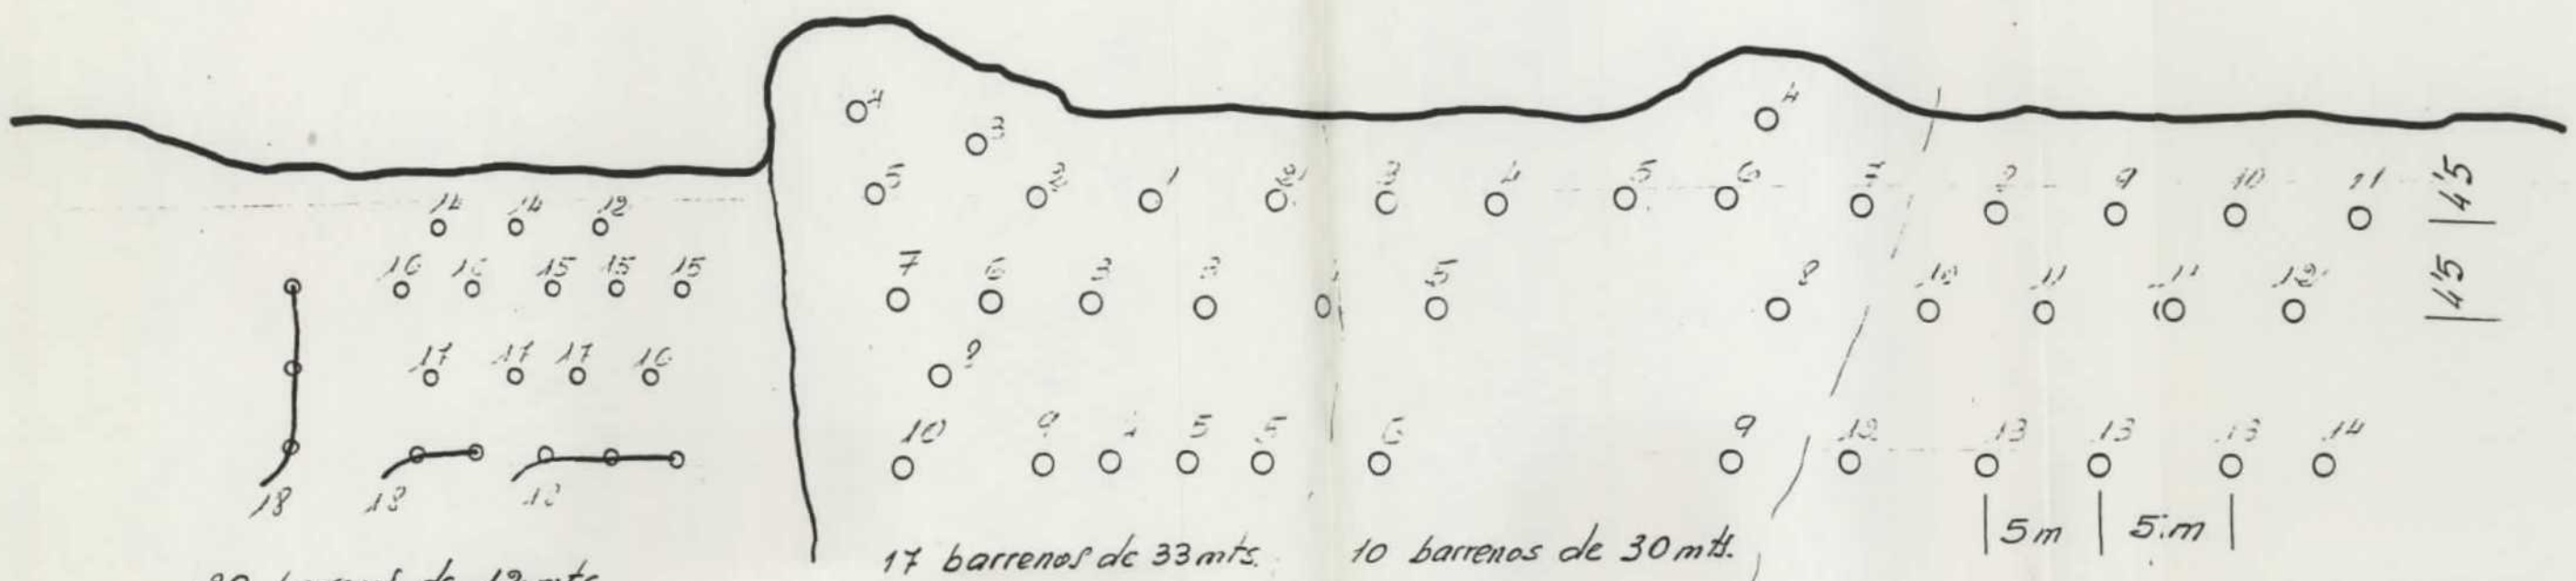 4 4
3
5 2 1 3 4 5 6 7 9 10 11 4'5
14 14 12
16 16 15 15 15 7 6 3 5 8 10 11 11 12 4'5
17 17 17 16
10 9 5 5 6 9 12 13 13 13 14
18 18 18
5m 5m
17 barrenos de 33 mts. 10 barrenos de 30 mts.
de 12 mts